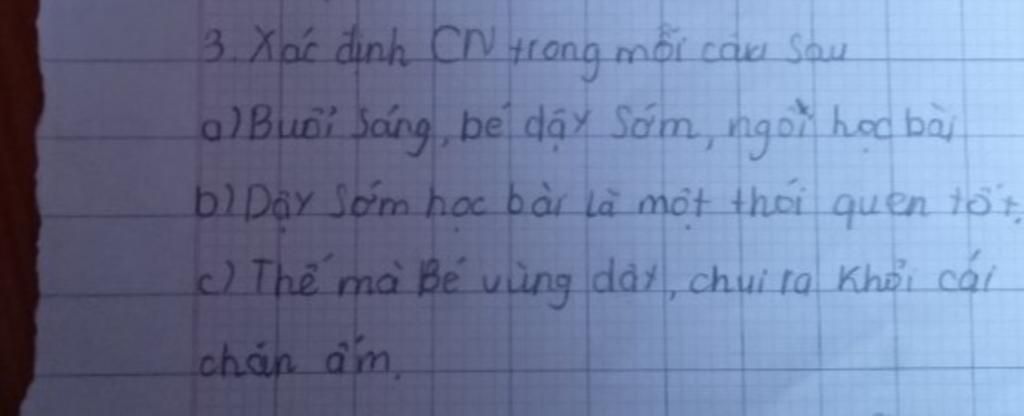 3. Xác định CN trong mỗi câu sau
a) Buổi sáng, bé dậy sớm, ngồi học bài
b) Dậy sớm học bài là một thói quen tốt.
c) Thế mà Bé vùng dậy, chui ra khỏi cái
chăn ấm.